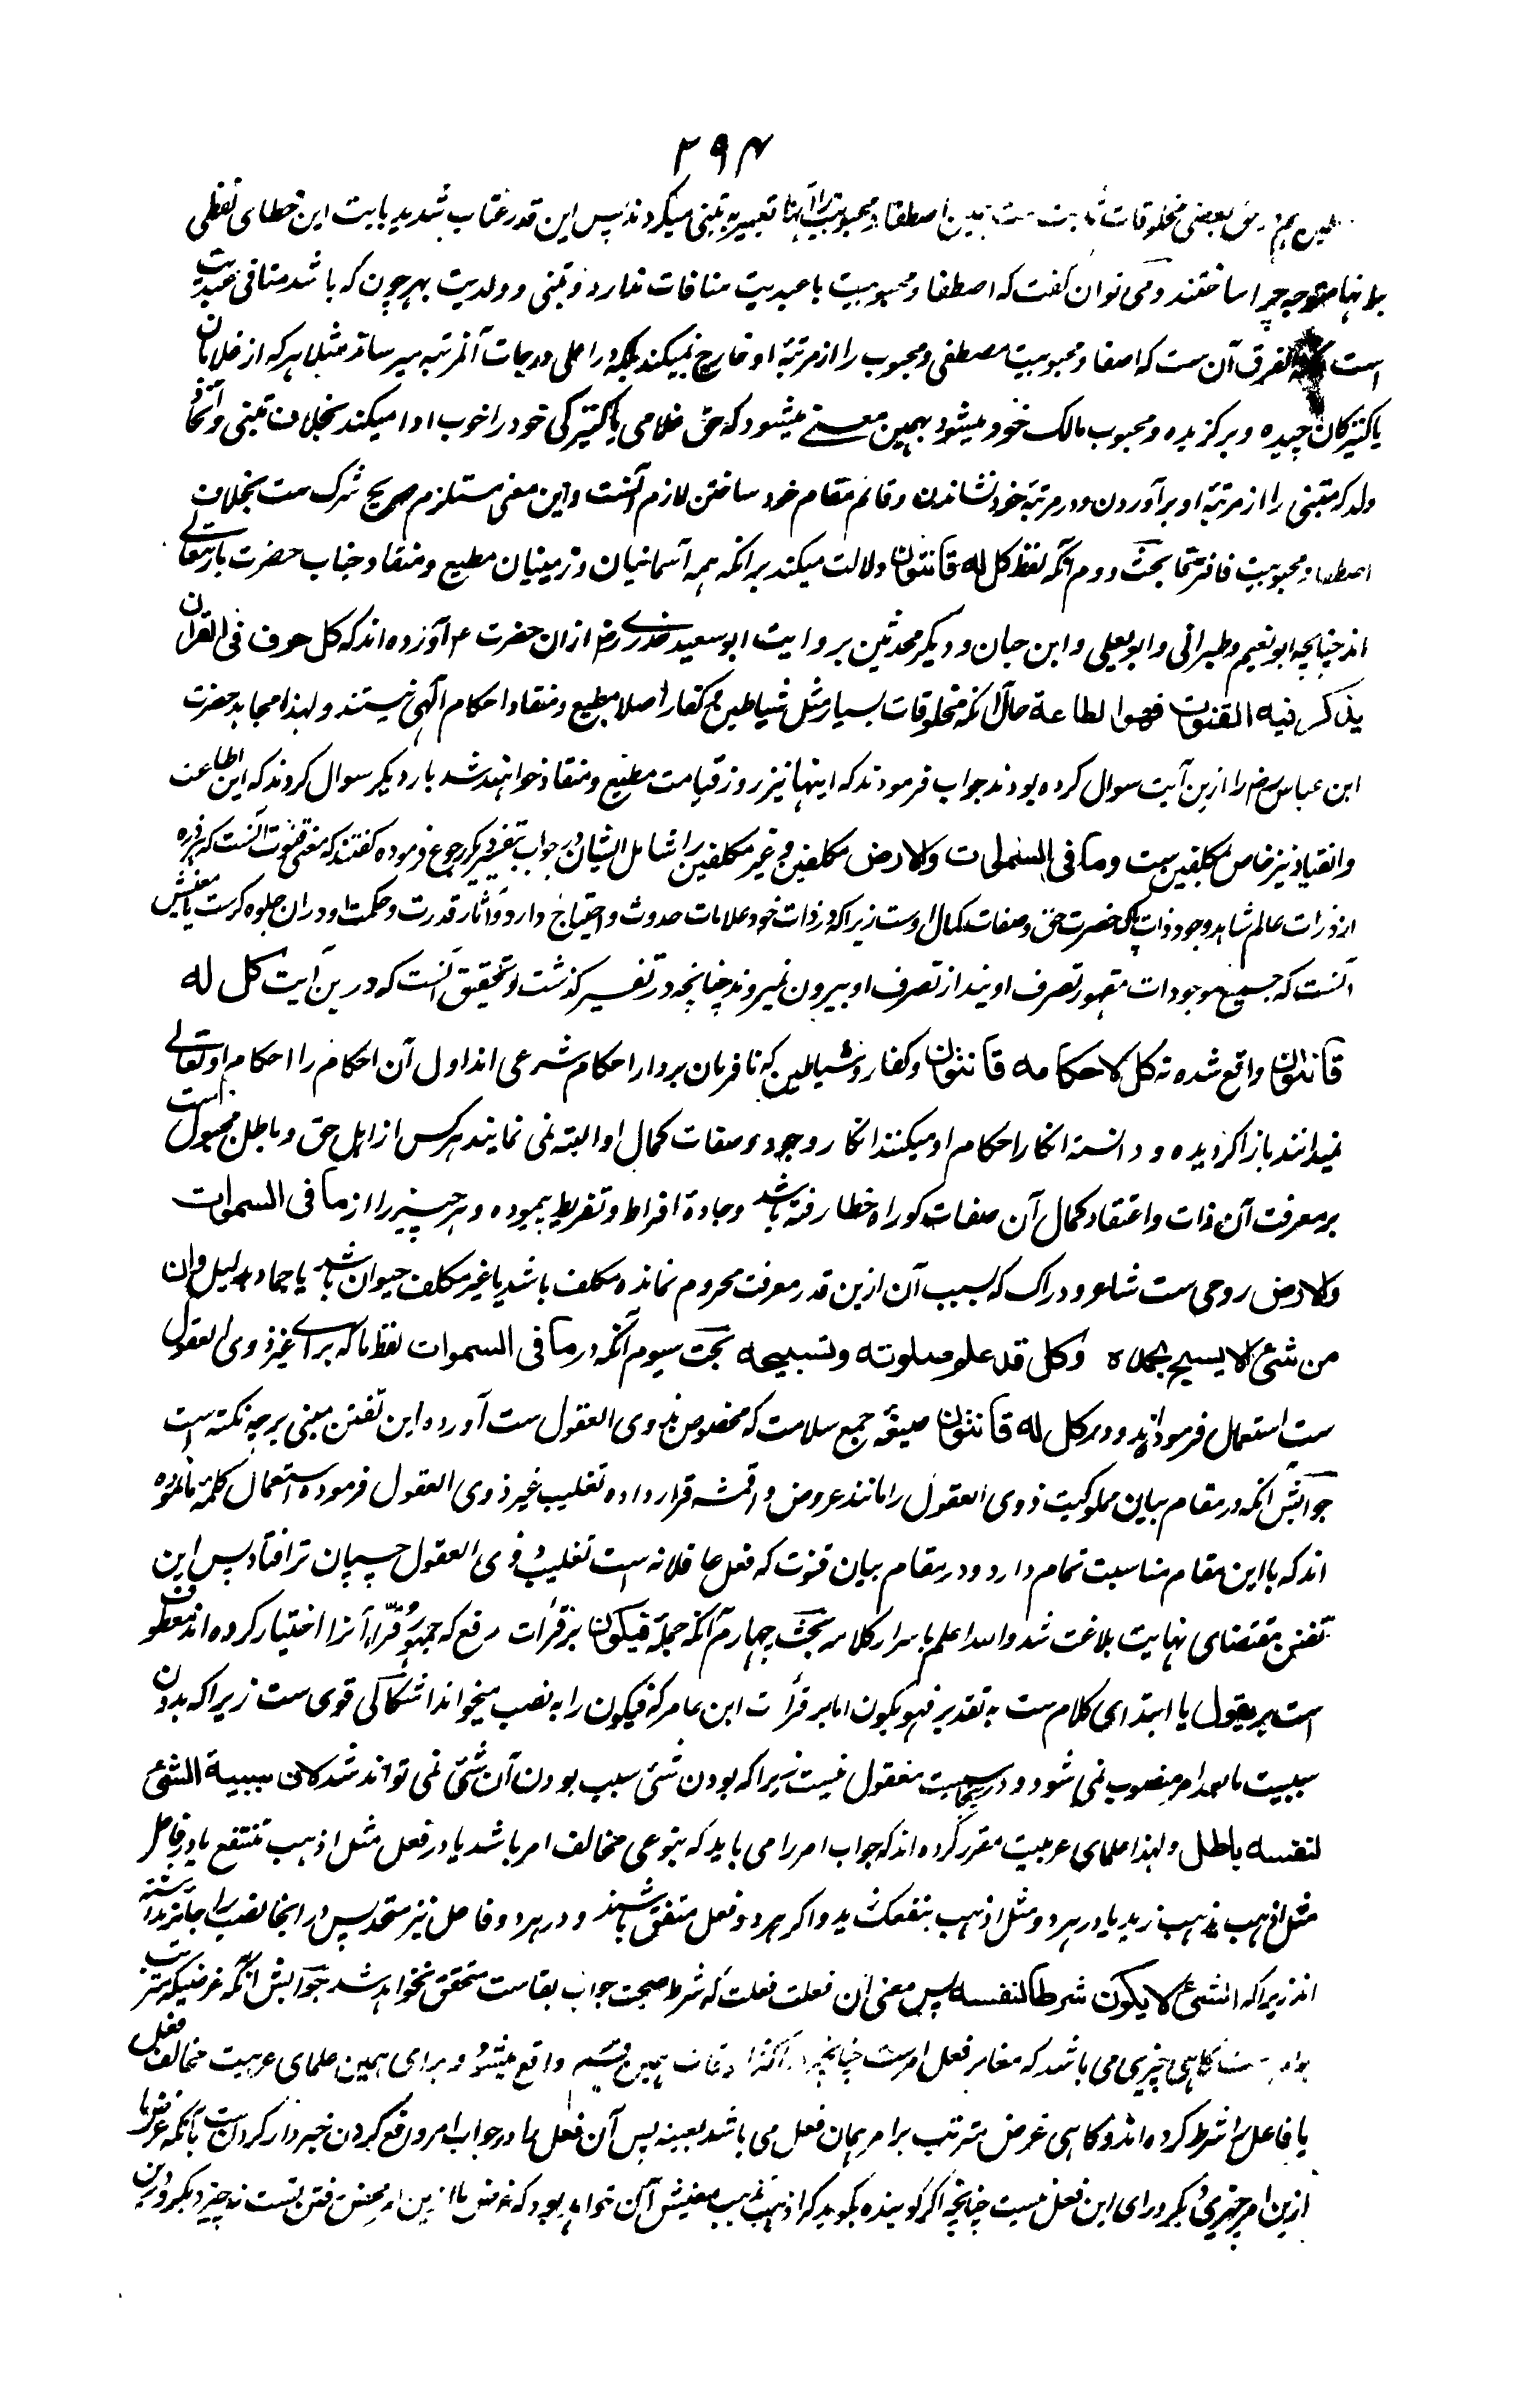 ۲۹۴
بعضی مخلوقات اصطفا و محبوبیت را آنها تعبیر به تبنی میکردند پس این قدر عتاب شدید بابت این خطای لفظی
بانها متوجه چرا ساختند و می توان گفت که اصطفا و محبوبیت با عبدیت منافات ندارد و تبنی و ولدیت بهر چون که باشد منافی عبدیت
است الفرق آن ست که اصفا و محبوبیت مصطفی و محبوب را از مرتبهٔ او خارج نمیکند بلکه در اعلی درجات آنمرتبه میرساند مثلا هر که از غلامان
یا کنیزکان چیده و برگزیده و محبوب مالک خود میشود بهمین معنے میشود که حق غلامی یا کنیزکی خود را خوب ادا میکند بخلاف تبنی و اتخاذ
ولد که متبنی را از مرتبهٔ او برآوردن و در مرتبهٔ خود نشاندن و قائم مقام خود ساختن لازم آنست و این معنی مستلزم صریح شرک ست بخلاف
اصطفا و محبوبیت فافترقا بحث دوم آنکه لفظ کل له قانتون دلالت میکند بر انکه همه آسمانیان و زمینیان مطیع و منقاد جناب حضرت باریتعالے
اند چنانچه ابو نعیم و طبرانی و ابو یعلی و ابن حبان و دیگر محدثین بروایت ابو سعید خدرے رض از ان حضرت ۴ آورده اند که کل حرف فی القران
یذکر فیه القنوت فهو الطاعة حال آنکه مخلوقات بسیار مثل شیاطین و کفار اصلا مطیع و منقاد احکام آلهی نیستند و لهذا مجاهد حضرت
ابن عباس رض را ازین آیت سوال کرده بودند جواب فرمودند که اینها نیز روز قیامت مطیع و منقاد خواهند شد بار دیگر سوال کردند که این اطاعت
و انقیاد نیز خاص بمکلفین ست و ما فی السمٰوات والارض مکلفین و غیر مکلفین را شامل ایشان در جواب بتفسیر دیگر رجوع فرموده گفتند که معنی قنوت آنست که هر ذره
از ذرات عالم شاهد وجود ذات پاک حضرت حق و صفات کمال اوست زیرا که در ذات خود علامات حدوث و احتیاج دارد و آثار قدرت و حکمت او در ان جلوه گرست یا معنیش
آنست که جمیع موجودات مقهور تصرف اویند از تصرف او بیرون نمیروند چنانچه در تفسیر گذشت و تحقیق آنست که درین آیت کل له
قانتون واقع شده نه کل لاحکامه قانتون و کفار و شیاطین که نافرمان بردار احکام شرعی اند اول آن احکام را احکام او تعالے
نمیدانند باز اگر دیده و دانسته انکار احکام او میکنند انکار وجود و صفات کمال او البته نمی نمایند هر کس از اهل حق و باطل مجبول است
بر معرفت آن ذات و اعتقاد کمال آن صفات گو راه خطا رفته باشد و جادهٔ افراط و تفریط پیموده و هر چیز را از ما فی السموات
والارض روحی ست شاعر و دراک که بسبب آن ازین قدر معرفت محروم نمانده مکلف باشد یا غیر مکلف حیوان باشد یا جماد بدلیل و ان
من شئ الا یسبح بحمده و کل قد علم صلوته و تسبیحه بحث سیوم آنکه در ما فی السموات لفظ ما که براے غیر ذوی العقول
ست استعمال فرموده اند و در کل له قانتون صیغه جمع سلامت که مخصوص بذوی العقول ست آورده این تفنن مبنی بر چه نکته است
جوابش آنکه در مقام بیان مملوکیت ذوی العقول را مانند عروض و اقمشه قرار داده تغلیب غیر ذوی العقول فرموده استعمال کلمهٔ ما نموده
اند که با این مقام مناسبت تمام دارد و در مقام بیان قنوت که فعل عاقلانه است تغلیب ذوی العقول چسپان تر افتاد پس این
تفنن بمقتضای نهایت بلاغت شد والله اعلم باسرار کلامه بحث چهارم آنکه جمله فیکون بر قرأت رفع که جمهور قرّاء آنرا اختیار کرده اند معطوف
است بر یقول یا ابتدای کلام ست به تقدیر فهو یکون اما بر قرأت ابن عامر که فیکون را به نصب میخواند اشکالی قوی ست زیرا که بدون
سببیت ما بعد امر منصوب نمی شود و در اینجا سببیت معقول نیست زیرا که بودن شئ سبب بودن آن شئ نمی تواند شد کان سببیة الشئ
لنفسه باطل و لهذا علمای عربیت مقرر کرده اند که جواب امر را می باید که بنوعی مخالف امر باشد یا در فعل مثل اذهب تنتفع یا در فاعل
مثل اذهب یذهب زید یا در هردو مثل اذهب ینفعک زید و اگر هر دو فعل متفق باشند و در هردو فاعل نیز متحد پس در اینجا نصب را جائز نداشته
اند زیرا که الشئ لا یکون شرطا لنفسه پس معنی ان فعلت فعلت که شرط صحت جواب بفاست متحقق نخواهد شد جوابش آنکه غرضیکه مترتب
بر امر ست گاهی چیزی می باشد که مغایر فعل امر ست چنانچه در اکثر اوقات همین قسم واقع میشود و برای همین علمای عربیت مخالفت فعل
یا فاعل را شرط کرده اند و گاهی غرض مترتب بر امر همان فعل می باشد بعینه پس آن فعل را در جواب امر واقع کردن خبردار کردن است بآنکه غرض ما
ازین امر چیزی دیگر ورای این فعل نیست چنانچه اگر گوینده بگوید که اذهب تذهب معنیش آن خواهد بود که غرض ما ازین امر محض رفتن تست نه چیز دیگر و درین